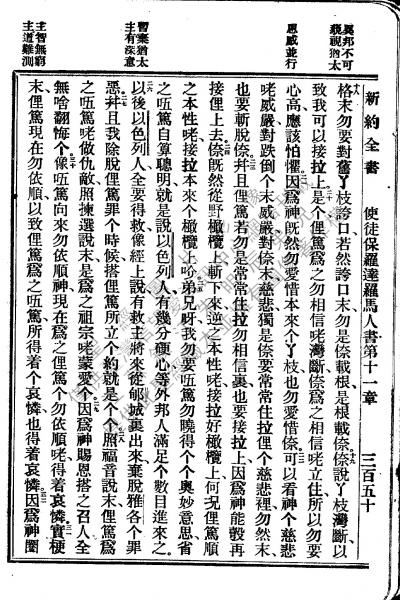 新約全書　使徒保羅達羅馬人書第十一章　三百五十
異邦不可
藐視猶太
恩威並行
暫棄猶太
主有深意
主智無窮
主道難測
格末勿要對舊丫枝誇口若然誇口末勿是倷載根是根載倷倷說丫枝灣斷以
致我可以接拉上是个俚篤爲之勿相信咾灣斷倷爲之相信咾立住所以勿要
心高應該怕懼因爲神既然勿愛惜本來个丫枝也勿愛惜倷可以看神个慈悲
咾威嚴對跌倒个末威嚴對倷末慈悲獨是倷要常常住拉俚个慈悲裡勿然末
也要斬脫倷并且俚篤若勿是常常住拉勿相信裏也要接拉上因爲神能彀再
接俚上去倷既然從野橄欖上斬下來逆之本性咾接拉好橄欖上何况俚篤順
之本性咾接拉本來个橄欖上吤弟兄呀我勿要唔篤勿曉得个个奧妙意思省
之唔篤自算聰明就是說以色列人有幾分硬心等外邦人滿足个數目進來之
以後以色列人全要得救像經上說有救主將來從郇城裏出來棄脫雅各个罪
惡并且我除脫俚篤罪个時候搭俚篤所立个約就是个个照福音說末俚篤爲
之唔篤咾做仇敵照揀選說末是爲之祖宗咾蒙愛个因爲神賜恩搭之召人全
無啥翻悔个像唔篤向來勿依順神現在爲之俚篤个勿依順咾得着哀憐實梗
末俚篤現在勿依順以致俚篤爲之唔篤所得着个哀憐也得着哀憐因爲神圈